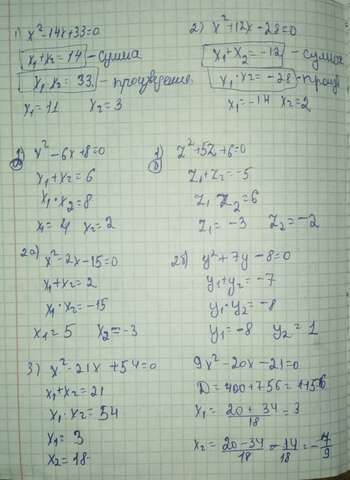 1) x²-14x+33=0
x₁+x₂=14 - сумма
x₁·x₂=33 - произведение
x₁=11 x₂=3
2) x²+12x-28=0
x₁+x₂=-12 - сумма
x₁·x₂=-28 - произ
x₁=-14 x₂=2
x²-6x+8=0
x₁+x₂=6
x₁·x₂=8
x₁=4 x₂=2
z²+5z+6=0
z₁+z₂=-5
z₁ z₂=6
z₁=-3 z₂=-2
2а) x²-2x-15=0
x₁+x₂=2
x₁·x₂=-15
x₁=5 x₂=-3
2б) y²+7y-8=0
y₁+y₂=-7
y₁·y₂=-8
y₁=-8 y₂=1
3) x²-21x+54=0
x₁+x₂=21
x₁·x₂=54
x₁=3
x₂=18
9x²-20x-21=0
D=400+756=1156
x₁=20+34/18=3
x₂=20-34/18=-14/18=-7/9